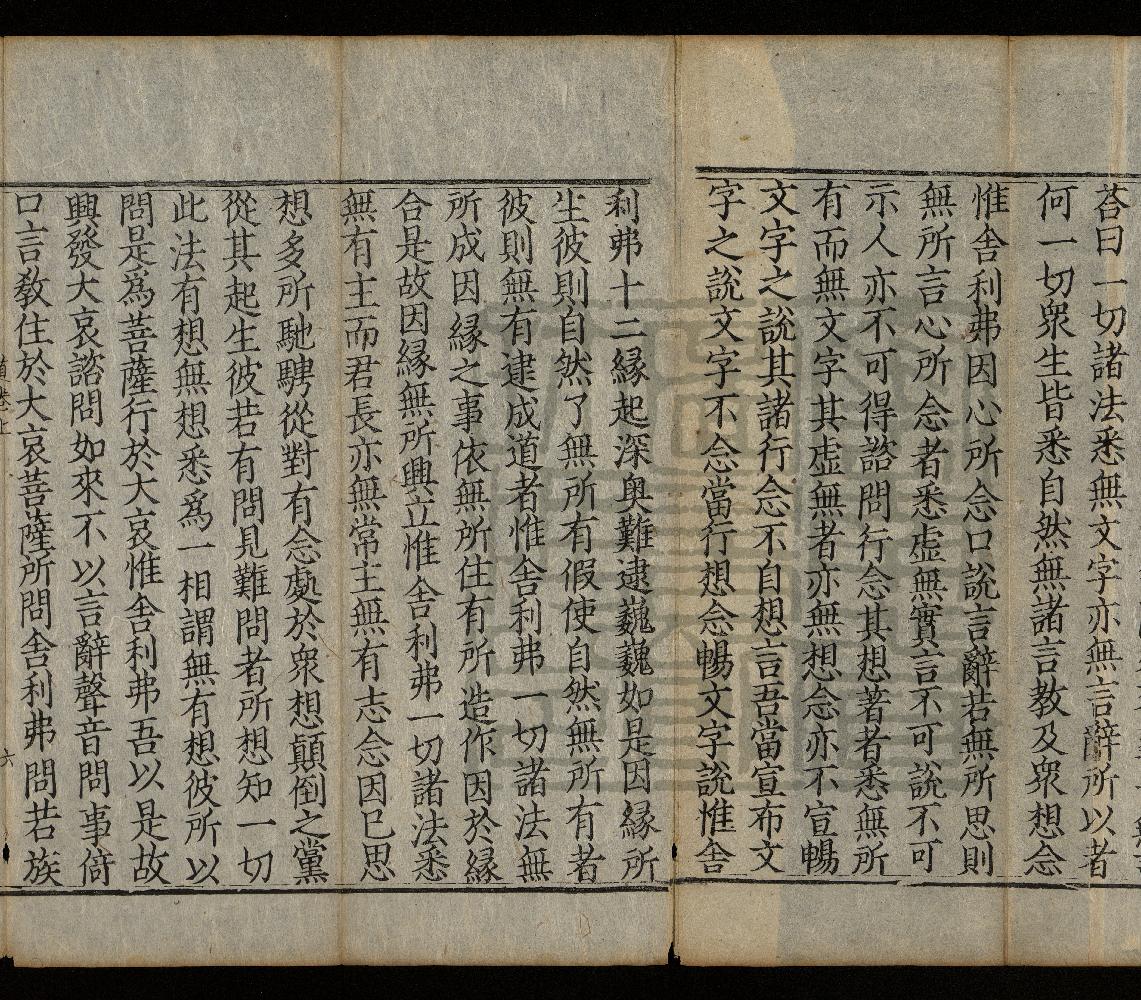 荅曰一切諸法悉無文字亦無言辭所以者
何一切衆生皆悉自然無諸言教及衆想念
惟舍利弗因心所念口說言辭若無所思則
無所言心所念者悉虛無實言不可說不可
示人亦不可得諮問行念其想著者悉無所
有而無文字其虛無者亦無想念亦不宣暢
文字之說其諸行念不自想言吾當宣布文
字之說文字不念當行想念暢文字說惟舍
利弗十二緣起深奥難逮巍巍如是因緣所
生彼則自然了無所有假使自然無所有者
彼則無有逮成道者惟舍利弗一切諸法無
所成因緣之事依無所住有所造作因於緣
合是故因緣無所興立惟舍利弗一切諸法悉
無有主而君長亦無常主無有志念因已思
想多所馳騁從對有念處於衆想顛倒之黨
從其起生彼若有問見難問者所想知一切
此法有想無想悉爲一相謂無有想彼所以
問是爲菩薩行於大哀惟舍利弗吾以是故
興發大哀諮問如來不以言辭聲音問事倚
口言教住於大哀菩薩所問舍利弗問若族
六